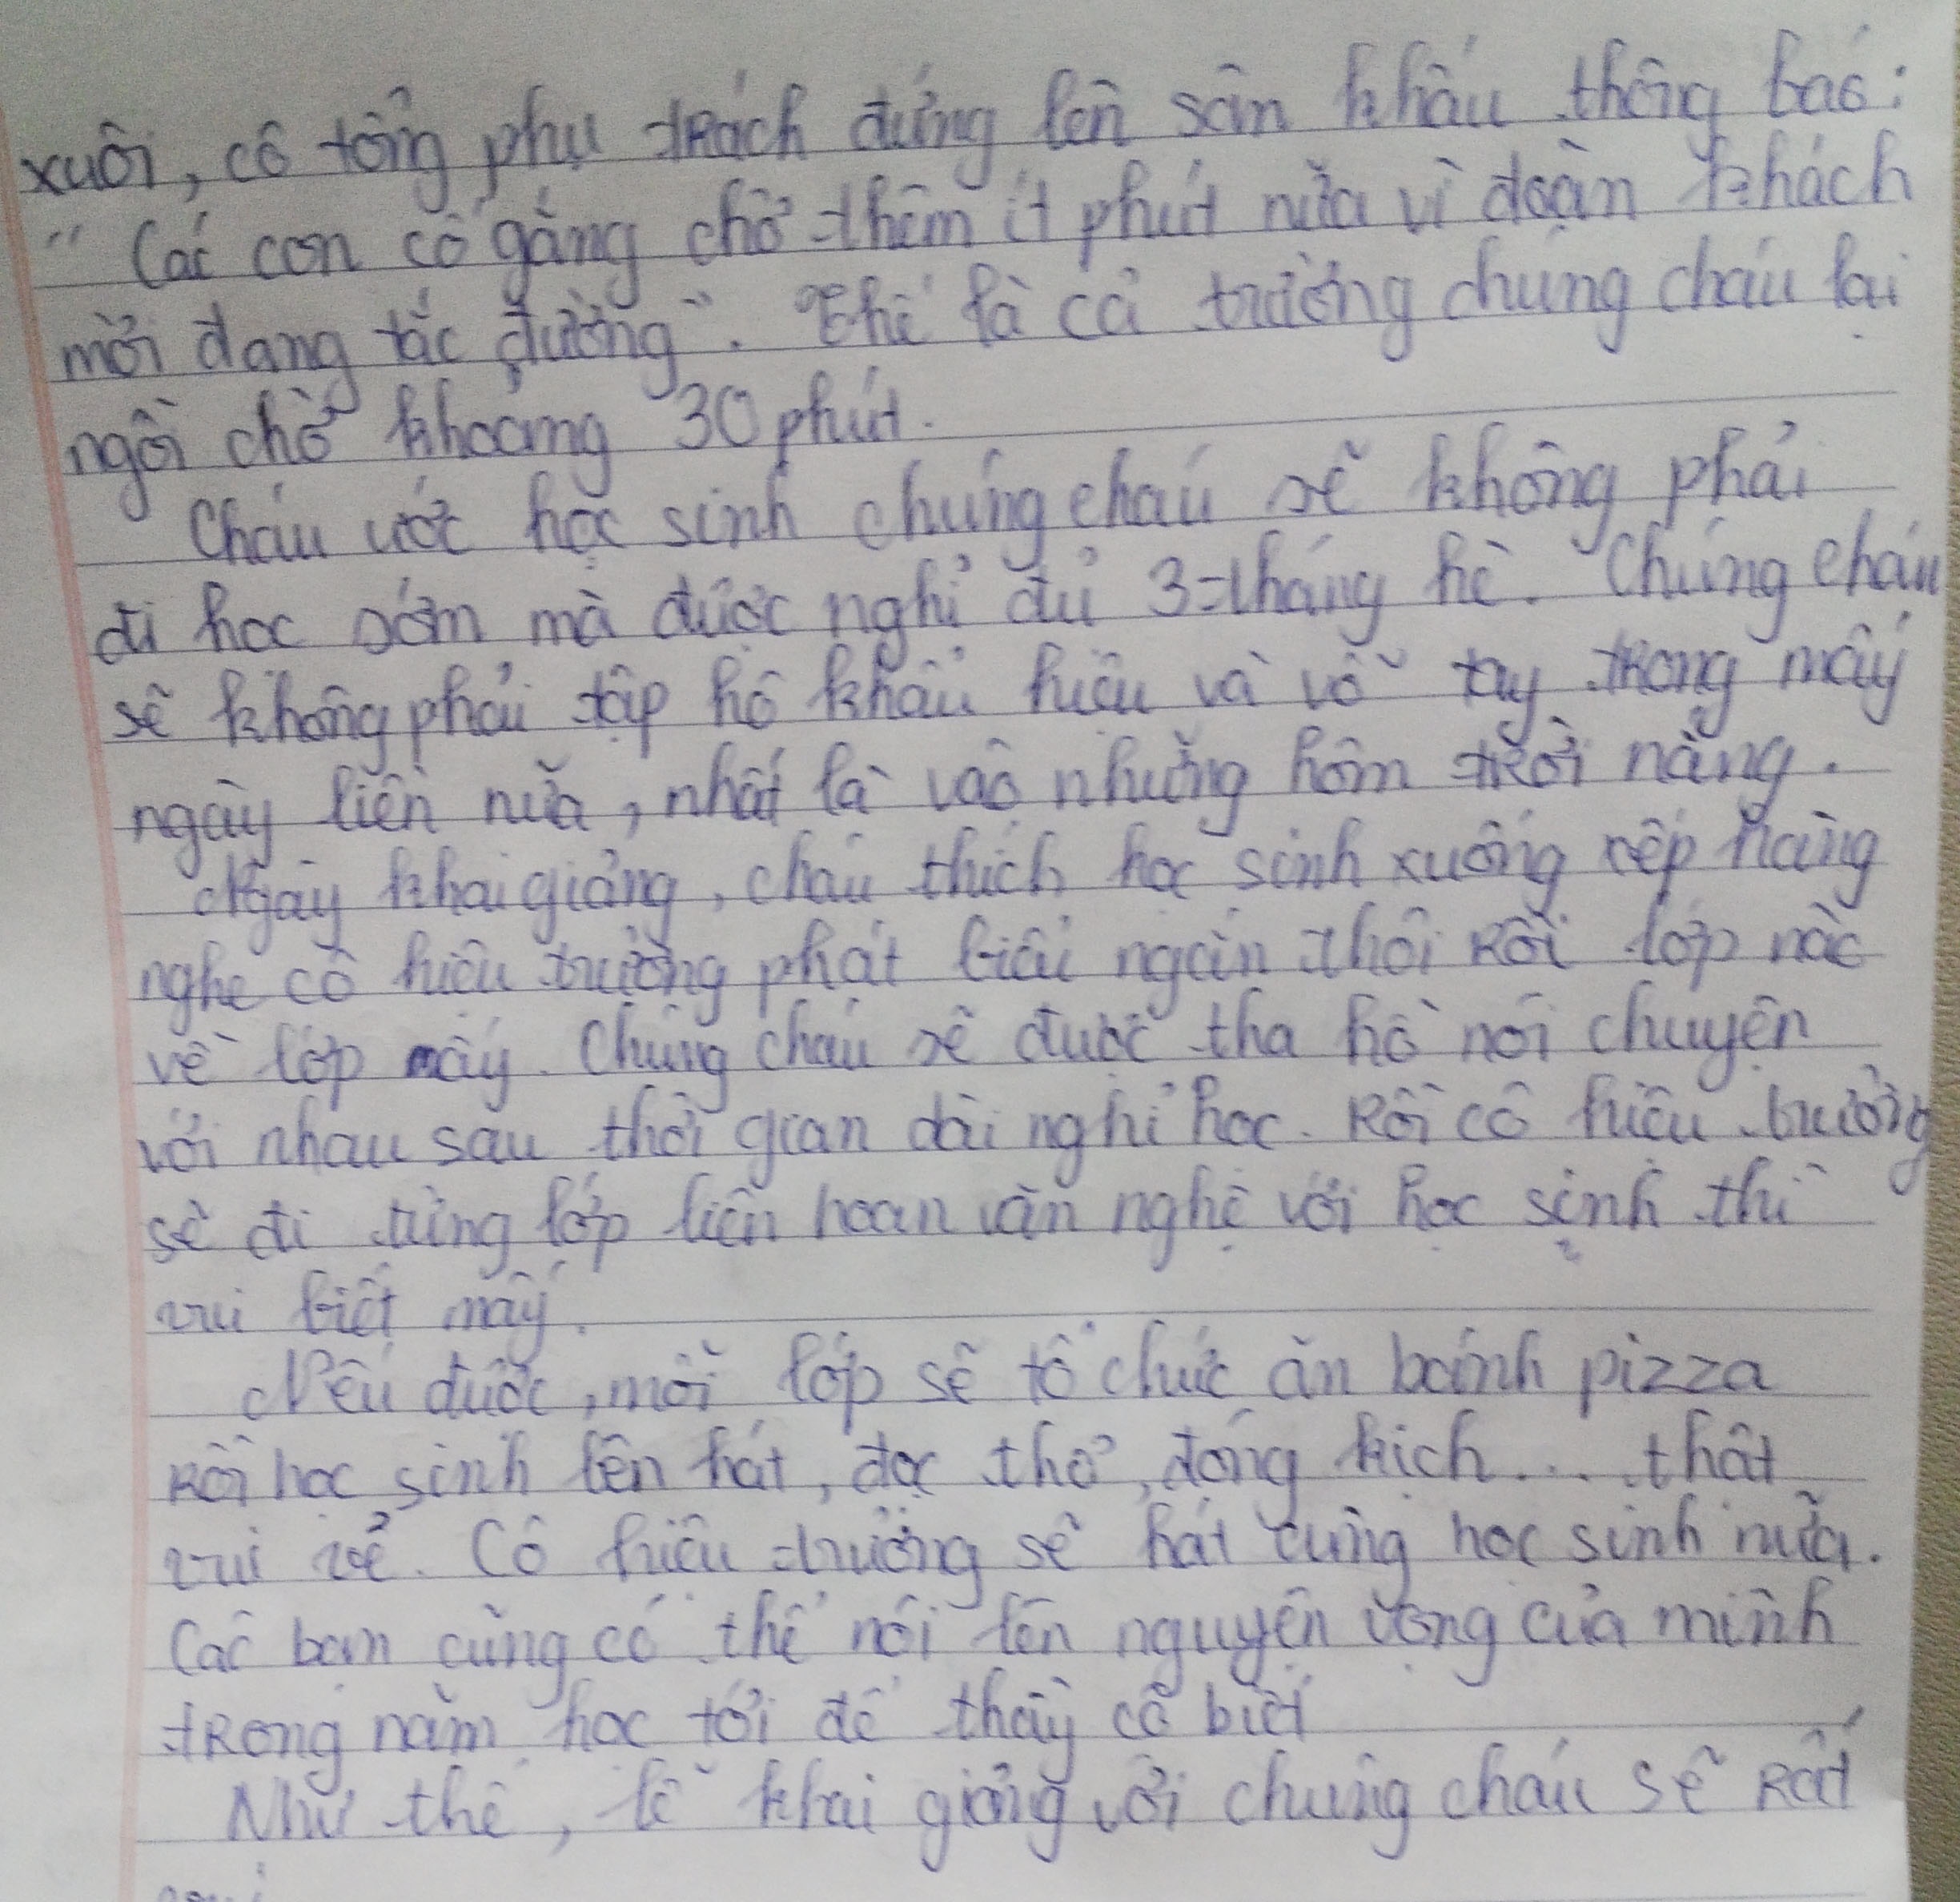 xuôi, cô tổng phụ trách đứng lên sân khấu thông báo:
"Các con cố gắng chờ thêm ít phút nữa vì đoàn khách
mời đang tắc đường". Thế là cả trường chúng cháu lại
ngồi chờ khoảng 30 phút.
Cháu ước học sinh chúng cháu sẽ không phải
đi học sớm mà được nghỉ đủ 3 tháng hè. Chúng cháu
sẽ không phải tập hô khẩu hiệu và vỗ tay trong mấy
ngày liền nữa, nhất là vào những hôm trời nắng.
Ngày khai giảng, cháu thích học sinh xuống xếp hàng
nghe cô hiệu trưởng phát biểu ngắn thôi rồi lớp nào
về lớp nấy. Chúng cháu sẽ được tha hồ nói chuyện
với nhau sau thời gian dài nghỉ học. Rồi cô hiệu trưởng
sẽ đi từng lớp liên hoan văn nghệ với học sinh thì
vui biết mấy.
Nếu được, mỗi lớp sẽ tổ chức ăn bánh pizza
rồi học sinh lên hát, đọc thơ, đóng kịch... thật
vui vẻ. Cô hiệu trưởng sẽ hát cùng học sinh nữa.
Các bạn cũng có thể nói lên nguyện vọng của mình
trong năm học tới để thầy cô biết
Như thế, lễ khai giảng với chúng cháu sẽ rất